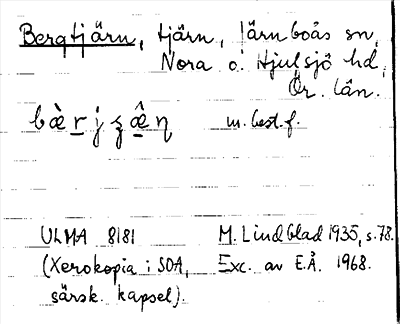 Bergtjärn, tjärn, Järnboås sn,
Nora o. Hjulsjö hd,
Ör. län.
m. best. f.
ULMA 8181 M. Lindblad 1935, s. 78.
(Xerokopia i SOA, Exc. av E.Å. 1968.
särsk. kapsel).